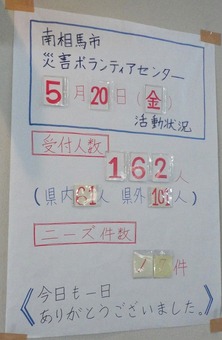 南相馬市
災害ボランティアセンター
5月20日(金)
活動状況
受付人数
162人
(県内 人 県外 人)
ニーズ件数
件
《今日も一日
ありがとうございました。》